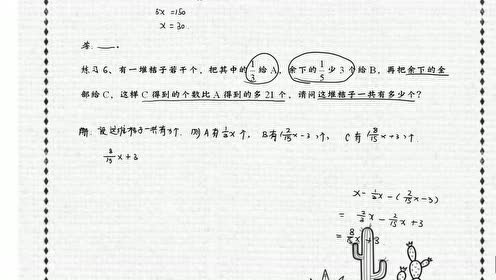 5x=150
x=30.
答: ——.
练习 6、有一堆桔子若干个，把其中的1/3给 A，余下的1/5少 3 个给 B，再把余下的全
部给 C，这样 C 得到的个数比 A 得到的多 21 个，请问这堆桔子一共有多少个？
解：设这堆桔子一共有x个，则 A有1/3x个， B有(2/15x-3)个， C有(8/15x+3)个.
8/15x+3
x-1/3x-(2/15x-3)
= 2/3x-2/15x+3
= 8/15x+3